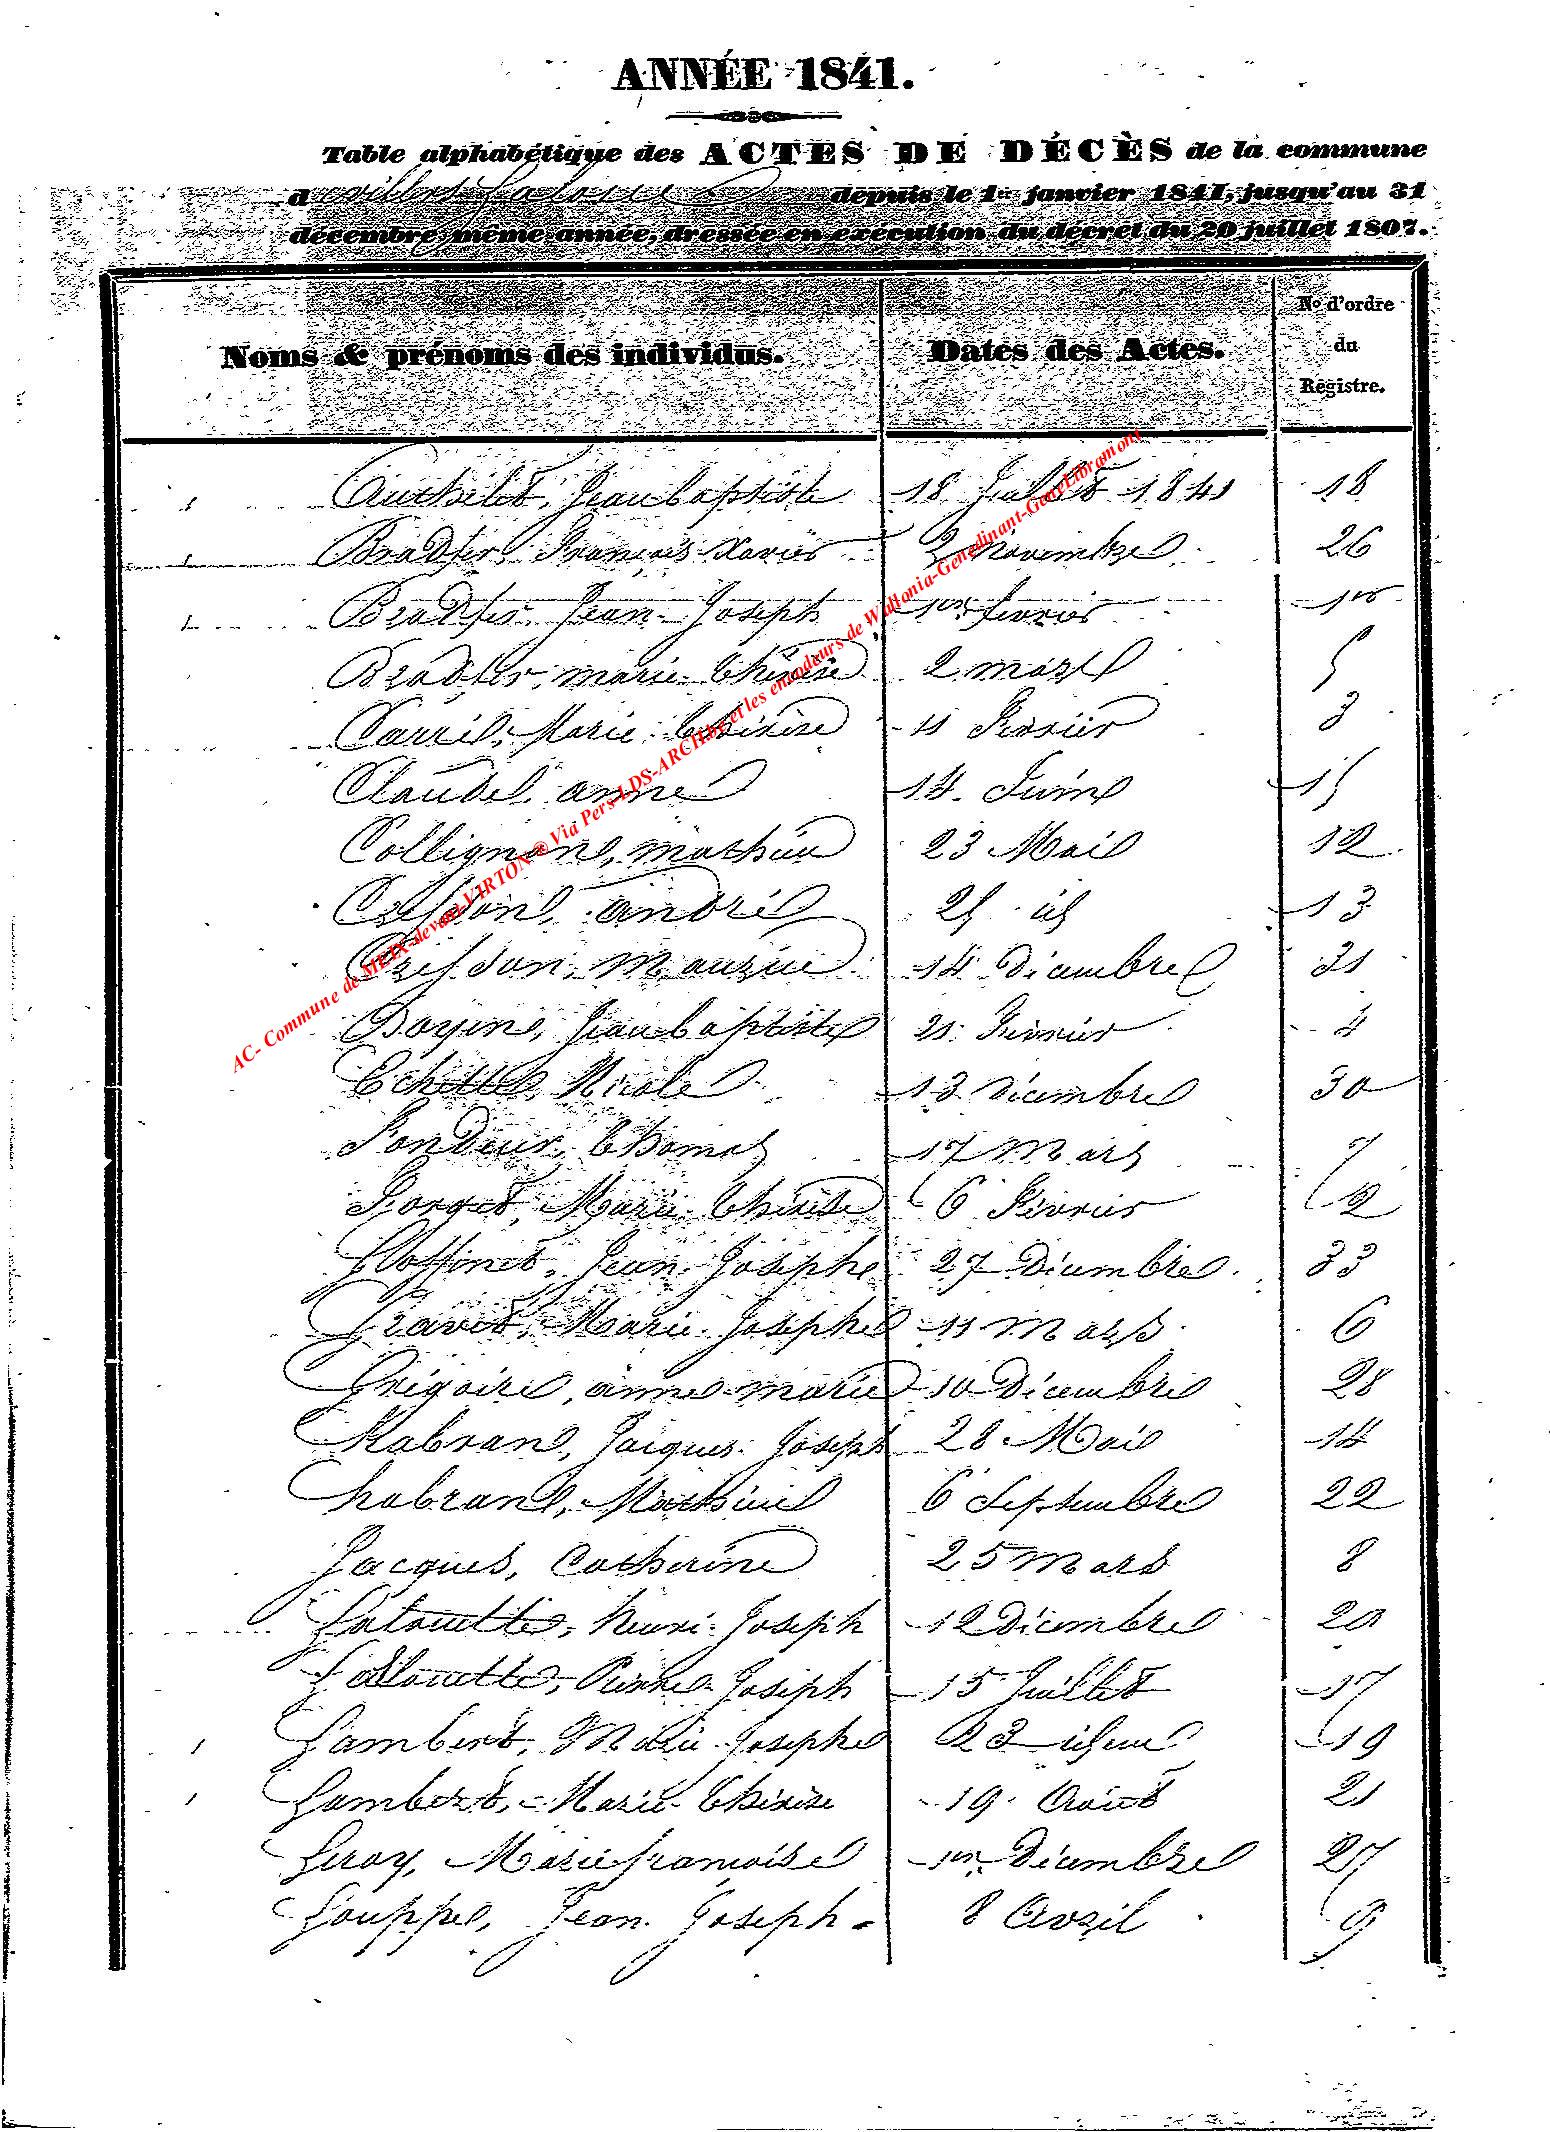 ANNÉE 1841.
Table alphabétique des ACTES DE DÉCÈS de la commune
d villers la loue depuis le 1er janvier 1841, jusqu'au 31
décembre même année, dressée en exécution du décret du 20 juillet 1807.
Noms & prénoms des individus. Dates des Actes. No d'ordre du Registre.
Authelet, Jean baptiste 18 Juillet 1841 18
Bradfer, François Xavier 2 Novembre 26
Bradfer Jean Joseph 1er fevrier 1er
Bradfer, marie Thérèse 2 mars 5
Carré, Marie Thérèse 11 Fevrier 3
Claude, anne 14 Juin 15
Collignon, mathieu 23 Mai 12
Cresson, andré 25 id 13
Cresson, 14 Décembre 31
Doyen, Jean baptiste 21 Février 4
Nicole 13 décembre 30
Fondeur, Thomas 17 Mars 7
Forget, Marie Thérèse 6 Février 2
Goffinet, Jean Joseph 27 Décembre 33
Gravet, Marie Josephe 11 Mars 6
Grégoire, anne marie 10 Décembre 28
Habran, Jacques Joseph 28 Mai 14
habran, Mathieu 6 Septembre 22
Jacques, Catherine 25 Mars 8
Lalouette, henri Joseph 12 Décembre 29
Lallouette, Pierre Joseph 15 Juillet 17
Lambert, Marie Josephe 23 idem 19
Lambert, Marie Thérèse 19 Août 21
Leroy, Marie françoise 1er Décembre 27
Louppe, Jean Joseph 8 Avril 9
AC- Commune de MEIX-devant-VIRTON ® Via Pers-LDS-ARCH.be et les encodeurs de Wallonia-Genedinant-GeneLibramont